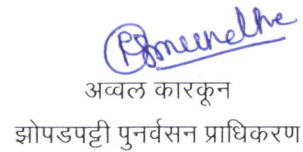 अव्वल कारकून
झोपडपट्टी पुनर्वसन प्राधिकरण